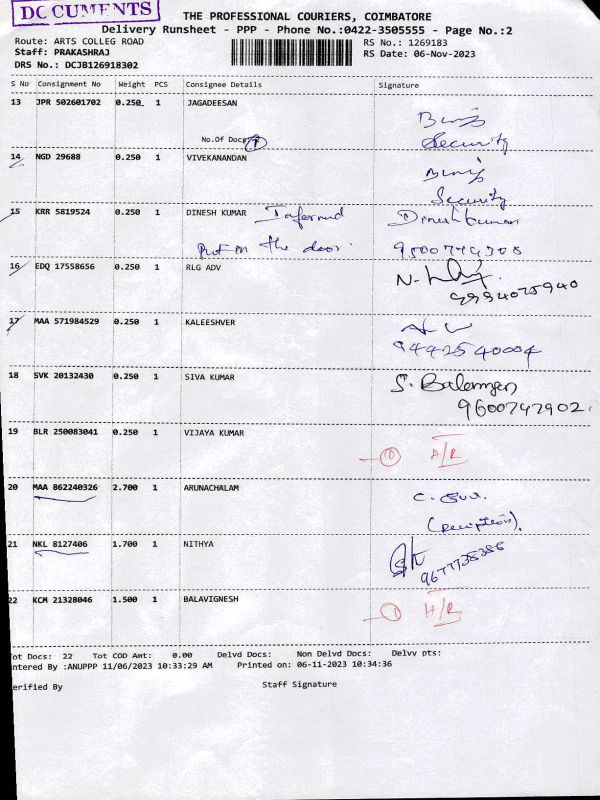 DOCUMENTS
THE PROFESSIONAL COURIERS, COIMBATORE
Delivery Runsheet - PPP - Phone No.:0422-3505555 - Page No.:2
Route: ARTS COLLEG ROAD RS No.: 1269183
Staff: PRAKASHRAJ RS Date: 06-Nov-2023
DRS No.: DCJB126918302
S No Consignment No Weight PCS Consignee Details Signature
13 JPR 502601702 0.250 1 JAGADEESAN
No.Of Docs 1
Security
14 NGD 29688 0.250 1 VIVEKANANDAN
Security
15 KRR 5819524 0.250 1 DINESH KUMAR Informed Dineshkumar
Put on the door.
16 EDQ 17558656 0.250 1 RLG ADV
9994075940
17 MAA 571984529 0.250 1 KALEESHVER
9442540004
18 SVK 20132430 0.250 1 SIVA KUMAR S.
9600747902.
19 BLR 250083041 0.250 1 VIJAYA KUMAR
20 MAA 862240326 2.700 1 ARUNACHALAM
(Reception).
21 NKL 8127406 1.700 1 NITHYA
22 KCM 21328046 1.500 1 BALAVIGNESH
ot Docs: 22 Tot COD Amt: 0.00 Delvd Docs: Non Delvd Docs: Delvy pts:
ntered By :ANUPPP 11/06/2023 10:33:29 AM Printed on: 06-11-2023 10:34:36
erified By Staff Signature